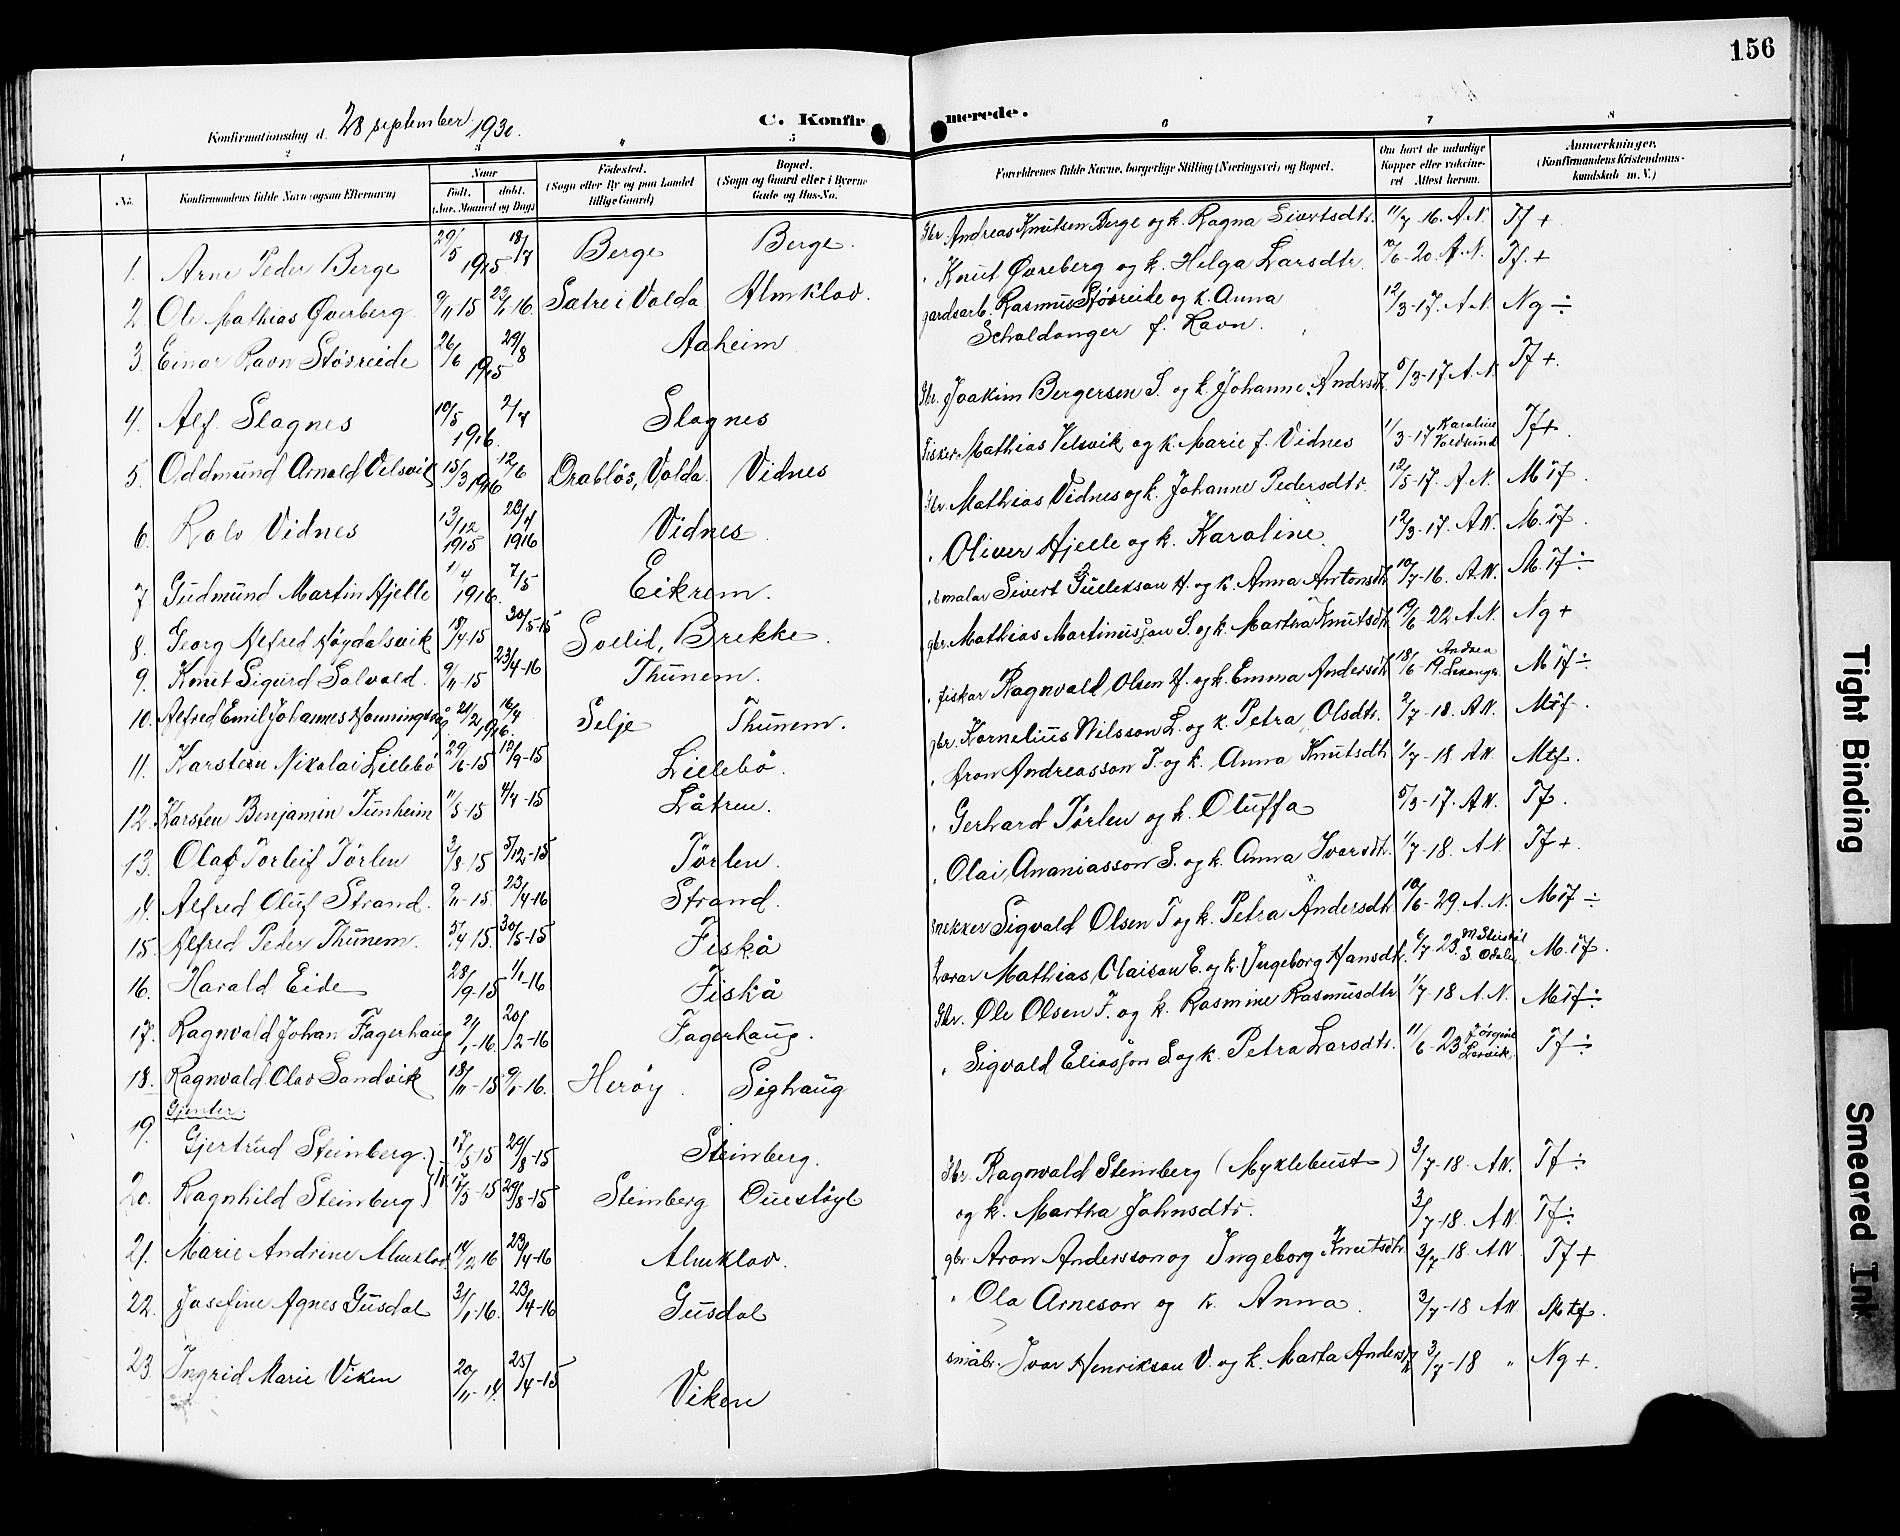 156
Konfirmationsdag d. 28 september 1930.
C. Konfirmerede.
1 2 3 4 5 6 7 8
No.
Konfirmandens fulde Navn (ogsaa Efternavn)
Naar
født, døbt.
(Aar, Maaned og Dag)
Fødested.
(Sogn eller By og paa Landet tillige Gaard)
Bopæl.
(Sogn og Gaard eller i Byerne Gade og Hus-No.
Forældrenes fulde Navne, borgerlige Stilling (Næringsvei) og Bopæl.
Om havt de naturlige Kopper eller vaccineret Attest herom.
Anmærkninger.
(Konfirmandens Kristendomskundskab m. V.)
1. Arne Peder Berge 29/5 1915 18/7 Berge Berge. Gbr. Andreas Knutsen Berge og k. Ragna Sivertsdtr. 11/7-16. A.N. Tf +
2. Ole Mathias Øvreberg. 9/11-15 23/1 16. Sætre i Volda Almklov. " Knut Øvreberg og k. Helga Larsdtr. 10/6-20. A.N. Tf. +
3. Einar Ravn Støvreide 26/6 1915 29/8 Aaheim gardsarb. Rasmus Støvreide og k. Anna 12/3-17. A.N. Ng ÷
Schaldanger f. Ravn.
4. Alf. Slagnes 10/5 1916. 2/7 Slagnes Gbr. Joakim Bergersen S. og k. Johanne Andrsdt. 5/3-17 A.N. Tf +.
5. Oddmund Arnold Velsvik 15/3 1916 12/6 Drabløs, Volda. Vidnes Fisker Mathias Velsvik og k. Marie f. Vidnes 1/3-17 Karoline Voldsund Tf+.
6. Rolv Vidnes 13/12 1915 23/4 1916 Vidnes Gbr. Mathias Vidnes og k. Johanne Pedersdtr. 12/5-17. A.N. Mtf.
7. Gudmund Martin Hjelle 1/4 1916. 7/5 Eikrem. " Oliver Hjelle og k. Karoline 12/3-17. A.N. M.tf.
8. Georg Alfred Høydalsvik 18/4-15 30/5-15 Sollid, Brekke. malar Sivert Gulleksson H. og k. Anna Antonsdt. 10/7-16. A.N. M.tf ÷
9. Knut Sigurd Solvold. 9/11-15 23/4-16 Thunem. gbr. Mathias Martinusson S. og k. Martha Knutsdt. 10/6-22 A.N. Ng +
10. Alfred Emil Johannes Honningsvåg. 21/2 1916. 16/4 Selje Thunem. " fiskar Ragnvald Olsen H. og k. Emma Andersdt. 18/6-19. Andrea Mtf ÷
11. Karsten Nikolai Lillebø 29/6-15 12/9-15 Lillebø. gbr. Kornelius Nilsson L. og k. Petra Olsdtr. 2/7-18. A.N. Mtf.
12. Karsten Benjamin Tunheim 11/3-15 4/4-15 Låtren. " Aron Andreasson T. og k. Anna Knutsdt. 1/7-18 A.N. Mtf.
13. Olaf Torleif Tørlen 3/8-15 5/12-15 Tørlen. " Gerhard Tørlen og k. Oluffa 5/3-17. A.N. Tf.
14. Alfred Oluf Strand. 9/11-15. 23/4-16 Strand. " Olai Ananiasson S. og k. Anna Ivarsdt. 1/7-18. A.N Tf +.
15. Alfred Peder Thunem. 5/4 15. 30/5-15 Fiskå snekker Sigvald Olsen T og k. Petra Andersdt. 10/6-29. A.N. Mtf ÷
16. Harald Eide 28/9-15 1/1-16 Fiskå Lærar Mathias Olaison E. og k. Ingeborg Hansdt. 6/7-23 M.tf.
17. Ragnvald Johan Fagerhaug 21/1-16. 20/2-16 Fagerhaug. Gbr. Ole Olsen F. og k. Rasmine Rasmusdtr. 1/7-18 A.N. Mtf ÷
18. Ragnvald Olav Sandvik 18/11-15 9/1-16. Herøy. Sighaug " Sigvald Eliasson S. og k. Petra Larsdt. 11/6-23 Jørgine Tf ÷
Gjenter:
19. Gjertrud Steinberg. 17/5 15 29/8-15 Steinberg. Gbr. Ragnvald Steinberg (Myklebust) 3/7-18. A.N. Tf ÷
20. Ragnhild Steinberg 17/5-15 29/8-15 Steinberg og k. Martha Johnsdtr. 3/7-18. A.N. Tf ÷
21. Marie Andrine Almklov 14/2 16 23/4-16 Almklov. gbr Aron Andersson og Ingeborg Knutsdtr. 3/7-18. A.N. Tf +
22. Josefine Agnes Gusdal 31/1-16. 23/4-16 Gusdal " Ola Arneson og k. Anna. 3/7-18 A.N. Mtf.
23. Ingrid Marie Viken 20/11-14. 25/4-15 Viken småbr. Ivar Henrikson V. og k. Marta Andersdt. 3/7-18 " Ng +.
Tight Binding
Smeared Ink